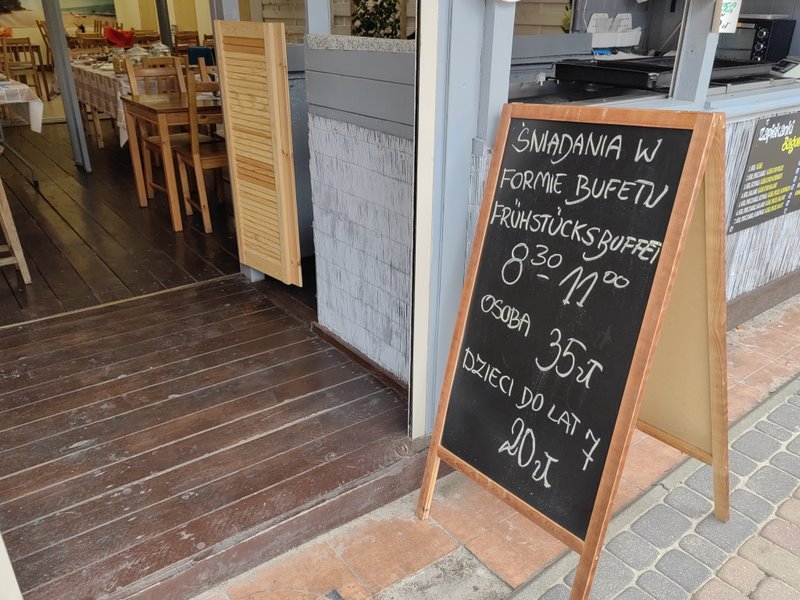 ŚNIADANIA W
FORMIE BUFETU
FRÜHSTÜCKSBUFFET
8³⁰-11⁰⁰
OSOBA 35zł
DZIECI DO LAT 7
20zł
Zapiekanki